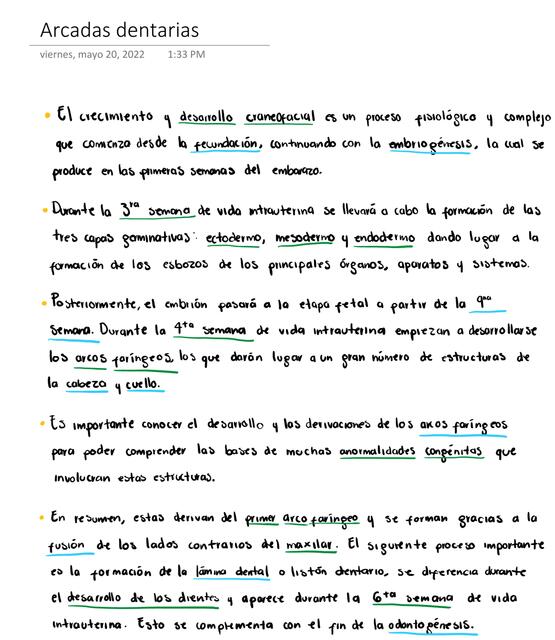 Arcadas dentarias
viernes, mayo 20, 2022 1:33 PM
• El crecimiento y desarrollo craneofacial es un proceso fisiológico y complejo
que comienza desde la fecundación, continuando con la embriogénesis, la cual se
produce en las primeras semanas del embarazo.
• Durante la 3ra semana de vida intrauterina se llevará a cabo la formación de las
tres capas germinativas: ectodermo, mesodermo y endodermo dando lugar a la
formación de los esbozos de los principales órganos, aparatos y sistemas.
• Posteriormente, el embrión pasará a la etapa fetal a partir de la 9na
semana. Durante la 4ta semana de vida intrauterina empiezan a desarrollarse
los arcos faríngeos, los que darán lugar a un gran número de estructuras de
la cabeza y cuello.
• Es importante conocer el desarrollo y las derivaciones de los arcos faríngeos
para poder comprender las bases de muchas anormalidades congénitas que
involucran estas estructuras.
• En resumen, estas derivan del primer arco faríngeo y se forman gracias a la
fusión de los lados contrarios del maxilar. El siguiente proceso importante
es la formación de la lámina dental o listón dentario, se diferencia durante
el desarrollo de los dientes y aparece durante la 6ta semana de vida
intrauterina. Esto se complementa con el fin de la odontogénesis.